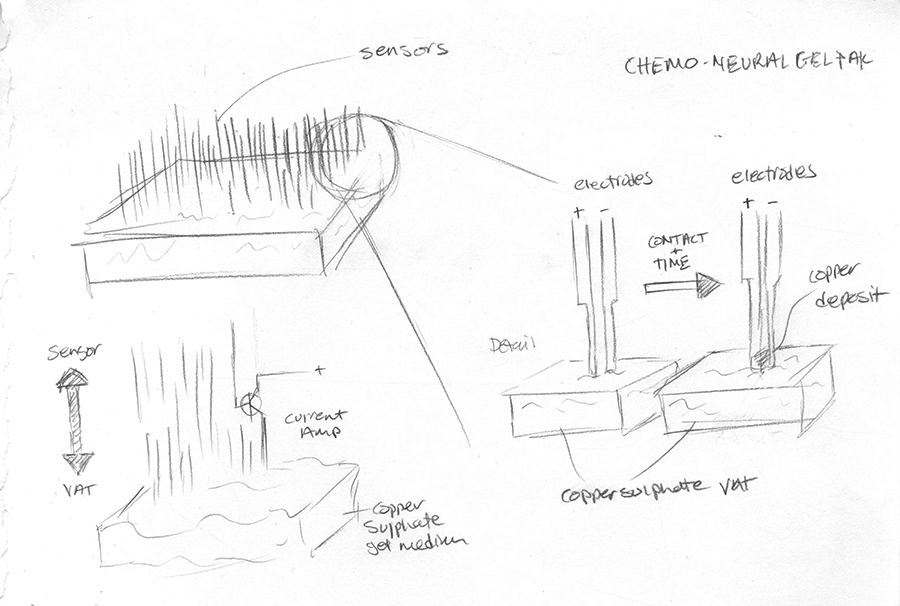 sensors
CHEMO-NEURAL GELPAK
electrodes
+ -
electrodes
+ -
CONTACT
+
TIME
copper
deposit
Detail
sensor
VAT
+
current
Amp
copper
Sulphate
gel medium
copper sulphate vat